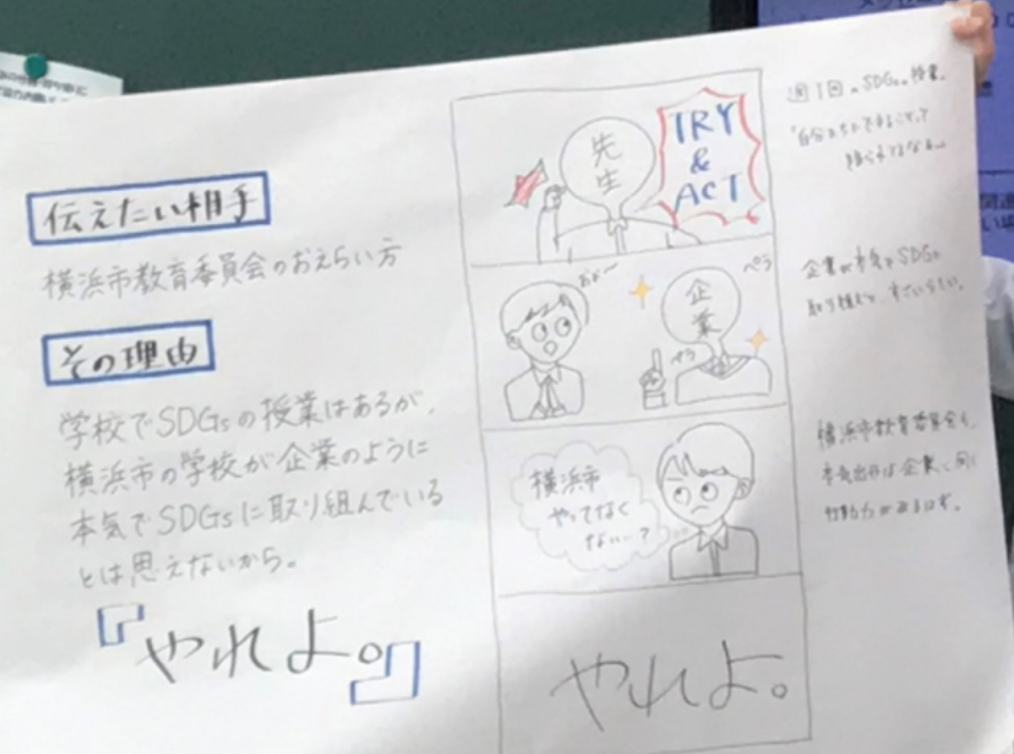 伝えたい相手
横浜市教育委員会のおえらい方
その理由
学校でSDGsの授業はあるが、
横浜市の学校が企業のように
本気でSDGsに取り組んでいる
とは思えないから。
『やれよ。』
先生
TRY
&
ACT
おぉ〜
企業
ペラ
ペラ
横浜市
やってなく
ない…?
やれよ。
週1回のSDGsの授業。
「自分たちにできることって
限られてるなぁ…
企業が本気でSDGsに
取り組むと、すごいらしい。
横浜市教育委員会も、
本気出せば企業と同じ
行動力があるはず。